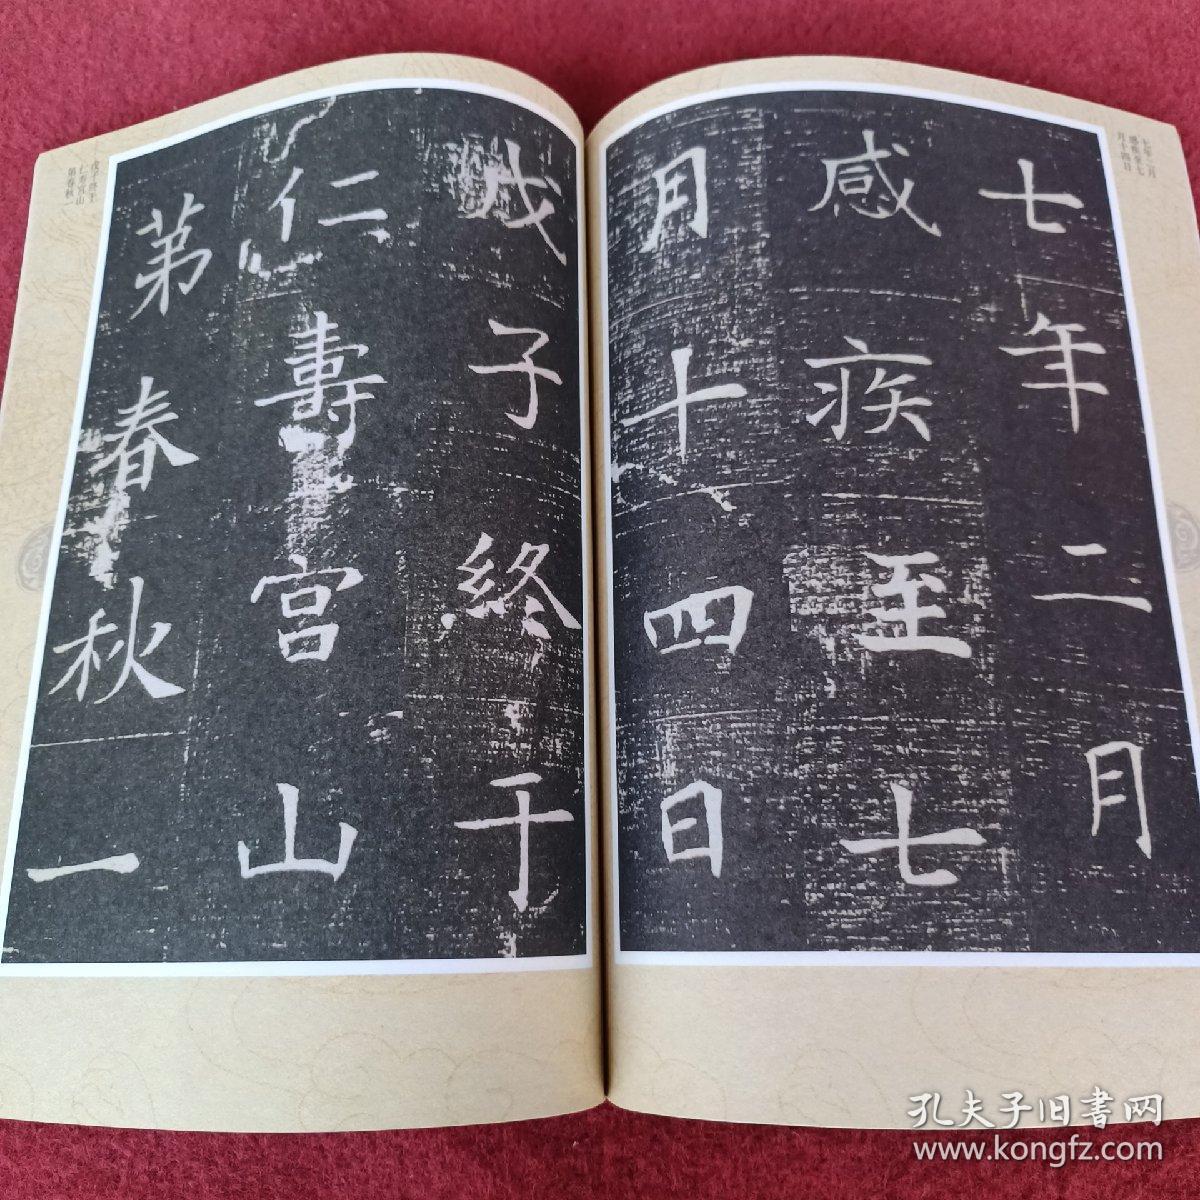 七年二月
感疾至七
月十四日
七年二月
感疾至七
月十四日
戊子終于
仁壽宮山
苐春秋一
戊子终于
仁寿宫山
第春秋一
孔夫子旧书网
www.kongfz.com